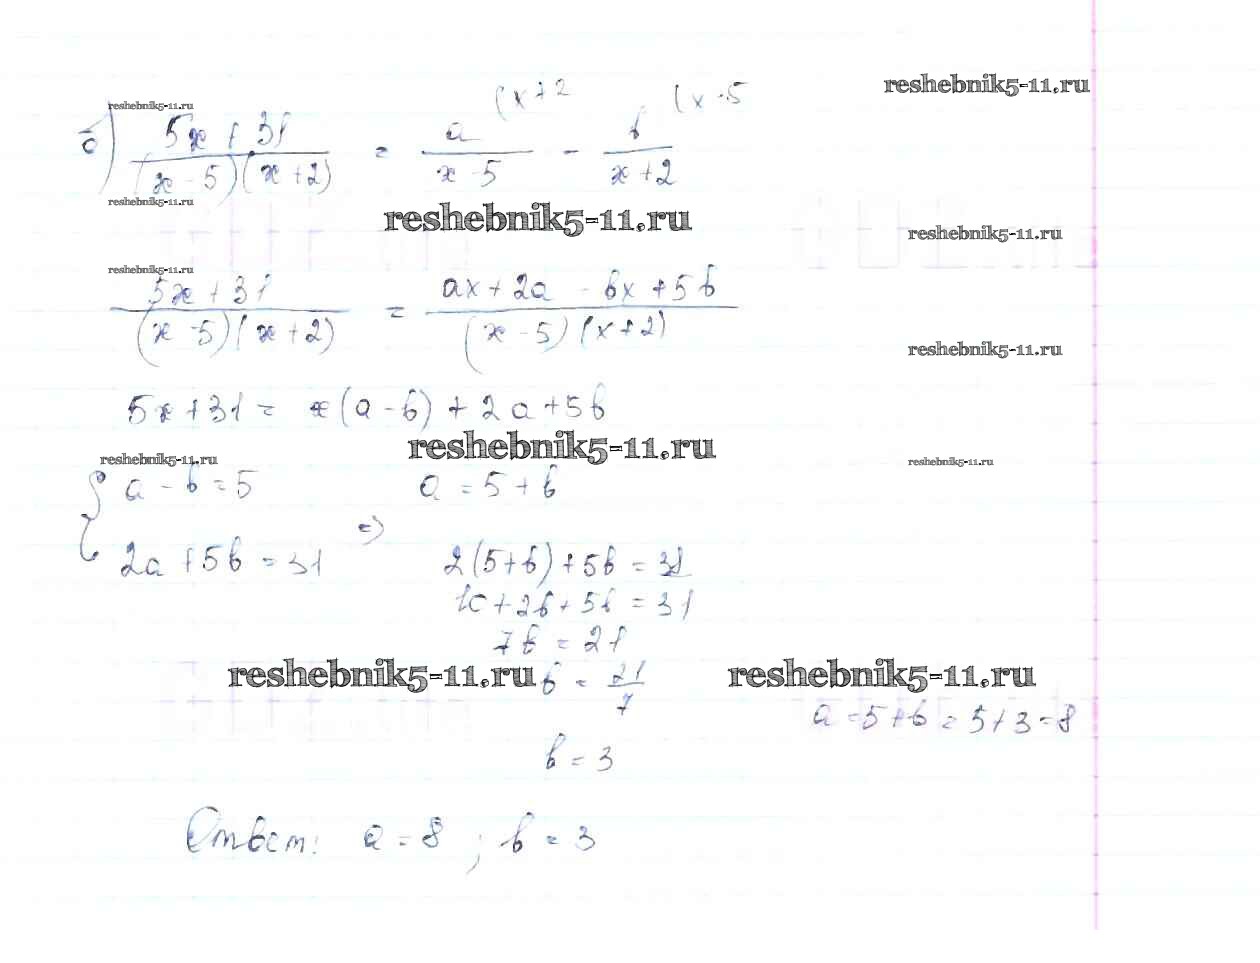 reshebnik5-11.ru
reshebnik5-11.ru
(x+2 (x-5
б) 5x+31 / (x-5)(x+2) = a / x-5 - b / x+2
reshebnik5-11.ru
reshebnik5-11.ru
reshebnik5-11.ru
reshebnik5-11.ru
5x+31 / (x-5)(x+2) = ax+2a-bx+5b / (x-5)(x+2)
reshebnik5-11.ru
5x+31= x(a-b)+2a+5b
reshebnik5-11.ru
reshebnik5-11.ru
reshebnik5-11.ru
{ a-b=5 a=5+b
=>
2a+5b=31 2(5+b)+5b=31
10+2b+5b=31
7b=21
reshebnik5-11.ru
reshebnik5-11.ru
b= 21 / 7
a=5+b=5+3=8
b=3
Ответ: a=8 ; b=3